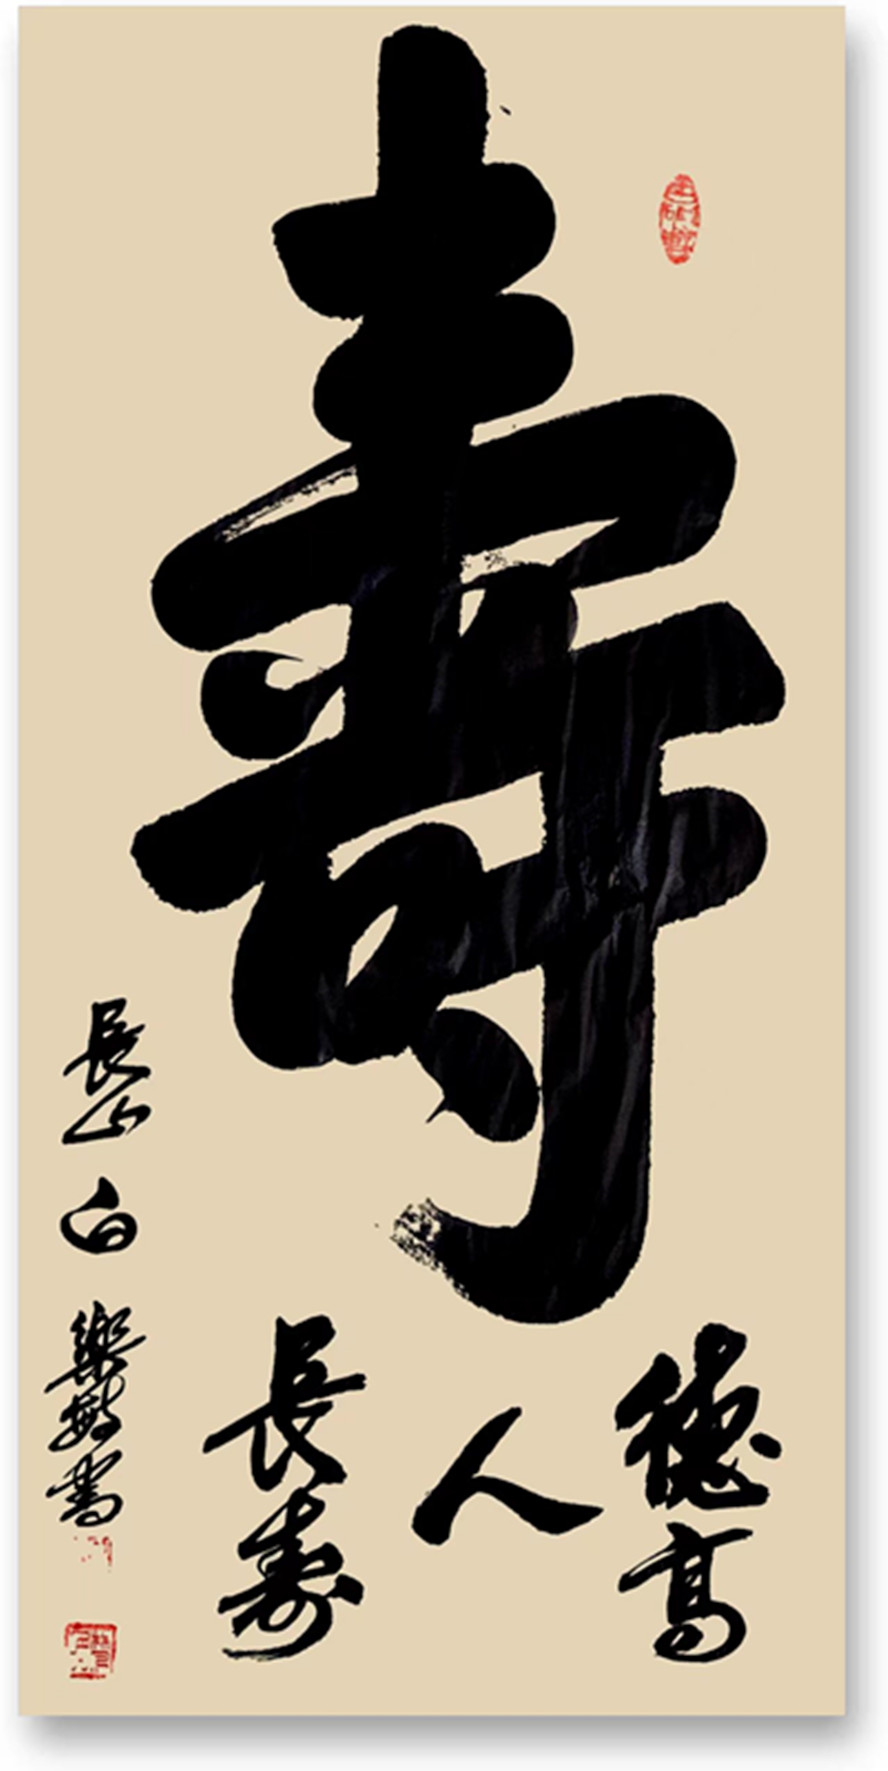 壽
德高
人
長寿
長山白樂敏書